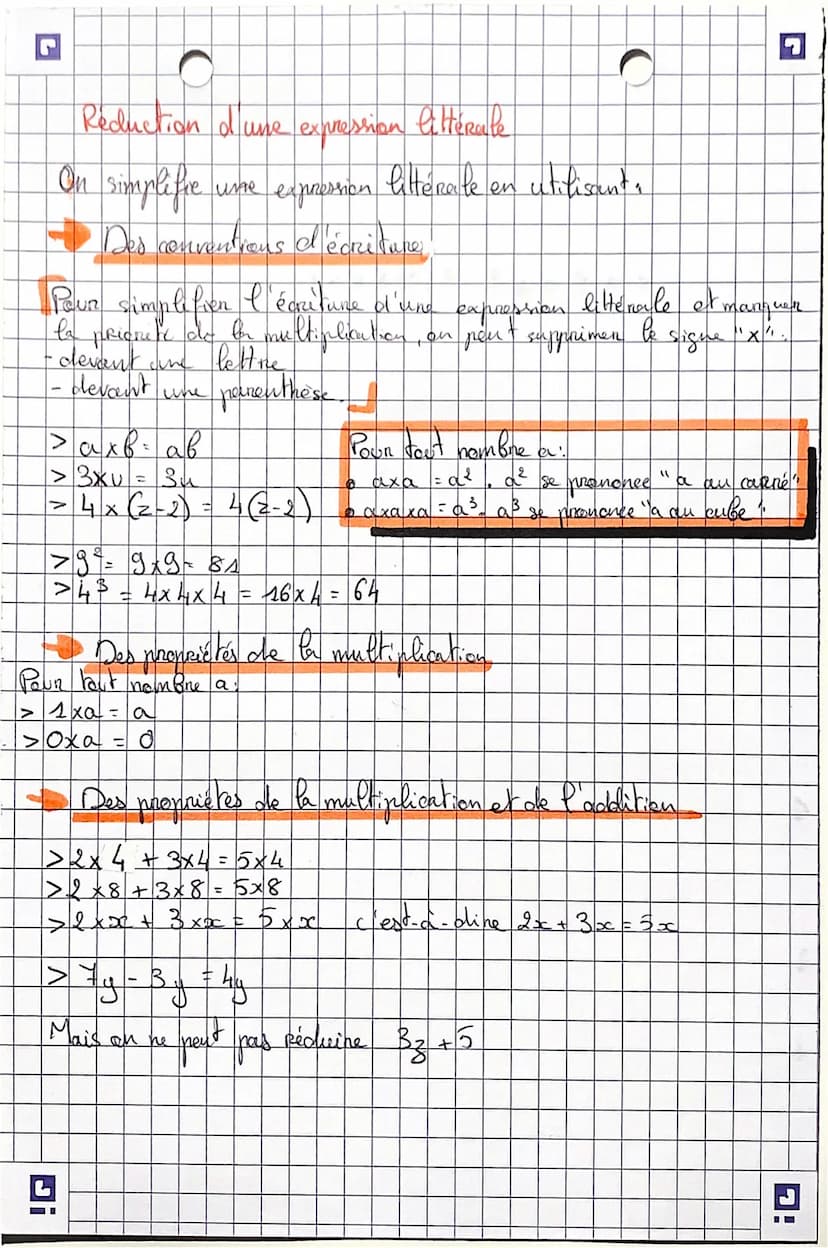 Réduction d'une expression littérale
On simplifie une expression littérale en utilisant,
Des conventions d'écriture
Pour simplifier l'écriture d'une expression littérale et marquer
la priorité de la multiplication, on peut supprimer le signe "x".
- devant une lettre
- devant une parenthèse.
> axb = ab
> 3xu = 3u
> 4 x (z-2) = 4(z-2)
Pour tout nombre a:
• axa = a². a² se prononce "a au carré"
• axaxa = a³. a³ se prononce "a au cube".
> 9² = 9x9 = 81
> 4³ = 4x4x4 = 16x4 = 64
Des propriétés de la multiplication
Pour tout nombre a:
> 1xa = a
> 0xa = 0
Des propriétes de la multiplication et de l'addition
> 2x4 + 3x4 = 5x4
> 2x8 + 3x8 = 5x8
> 2xx + 3xx = 5xx c'est-à-dire 2x + 3x = 5x
> 7y - 3y = 4y
Mais on ne peut pas réduire 3z + 5